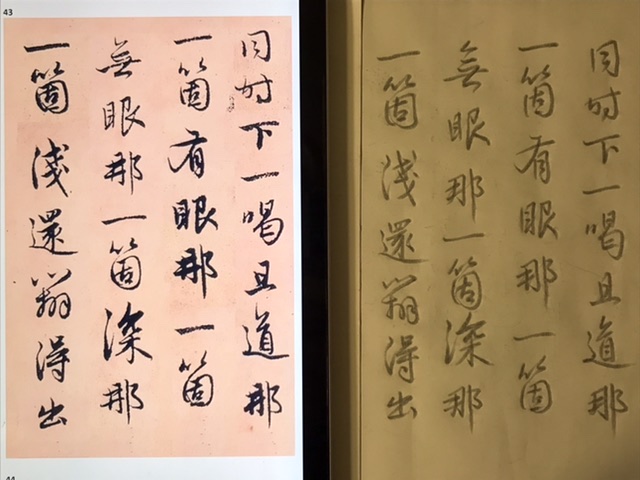 43
同时下一喝且道那
一箇有眼那一箇
無眼那一箇深那
一箇淺還辨得出
同时下一喝且道那
一箇有眼那一箇
無眼那一箇深那
一箇淺還辨得出